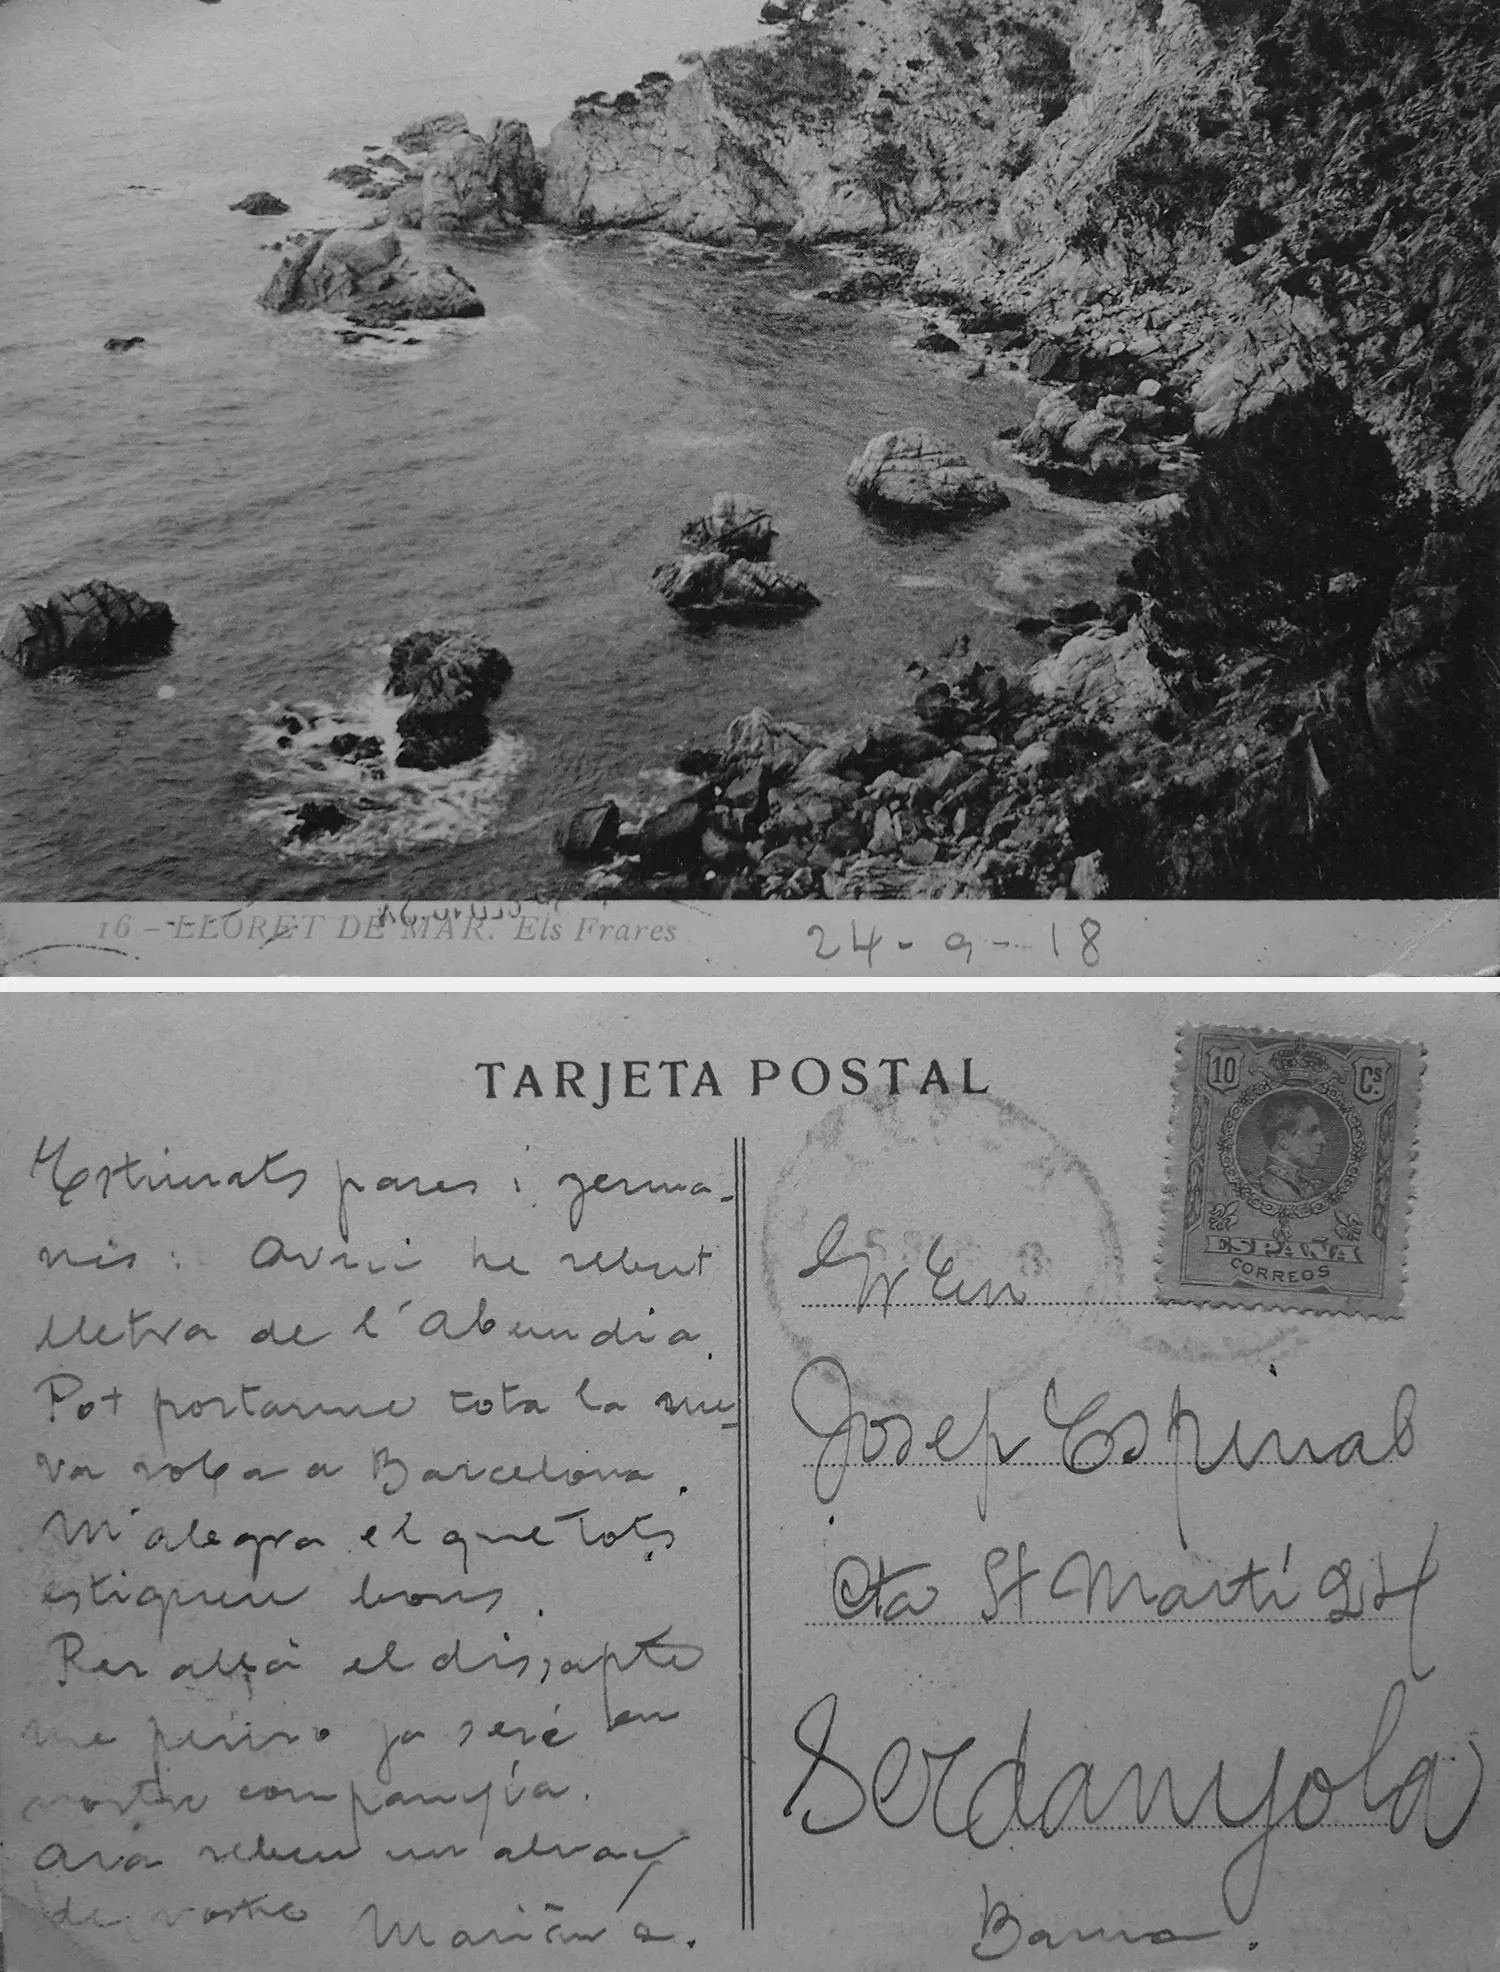 16 - LLORET DE MAR. Els Frares
24 - 9 - 18
TARJETA POSTAL
10 Cs.
ESPAÑA
CORREOS
Estimats pares i germa-
nis: Avui he rebut
lletra de l'Abundia.
Pot portarme tota la no-
va roba a Barcelona.
M'alegra el que tots
estigueu bons.
Per allà el dissapte
me penso ja seré en
vostre companyía.
Ara rebeu un abraç
de vostre
Sr En
Josep Espinal
Cta St Martí 24
Serdanyola
Barna.